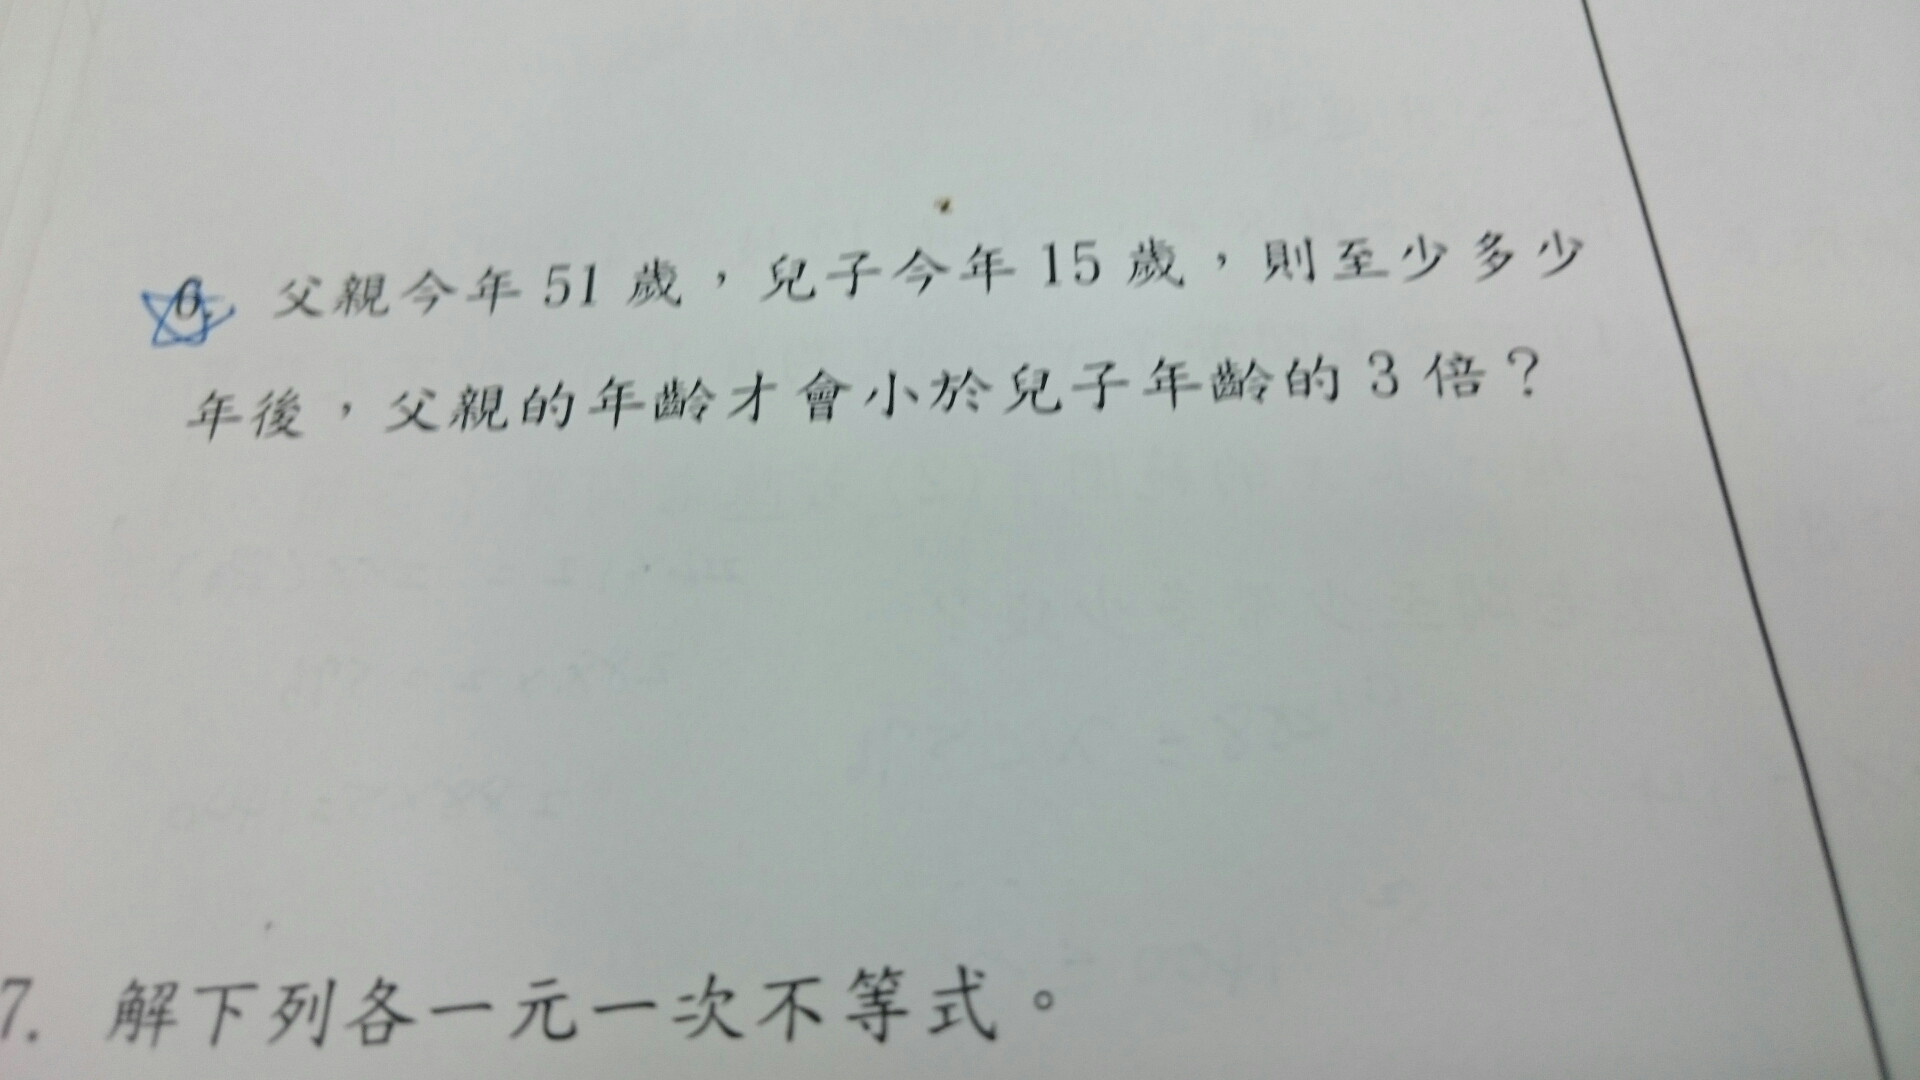 6. 父親今年 51 歲，兒子今年 15 歲，則至少多少
年後，父親的年齡才會小於兒子年齡的 3 倍？
7. 解下列各一元一次不等式。